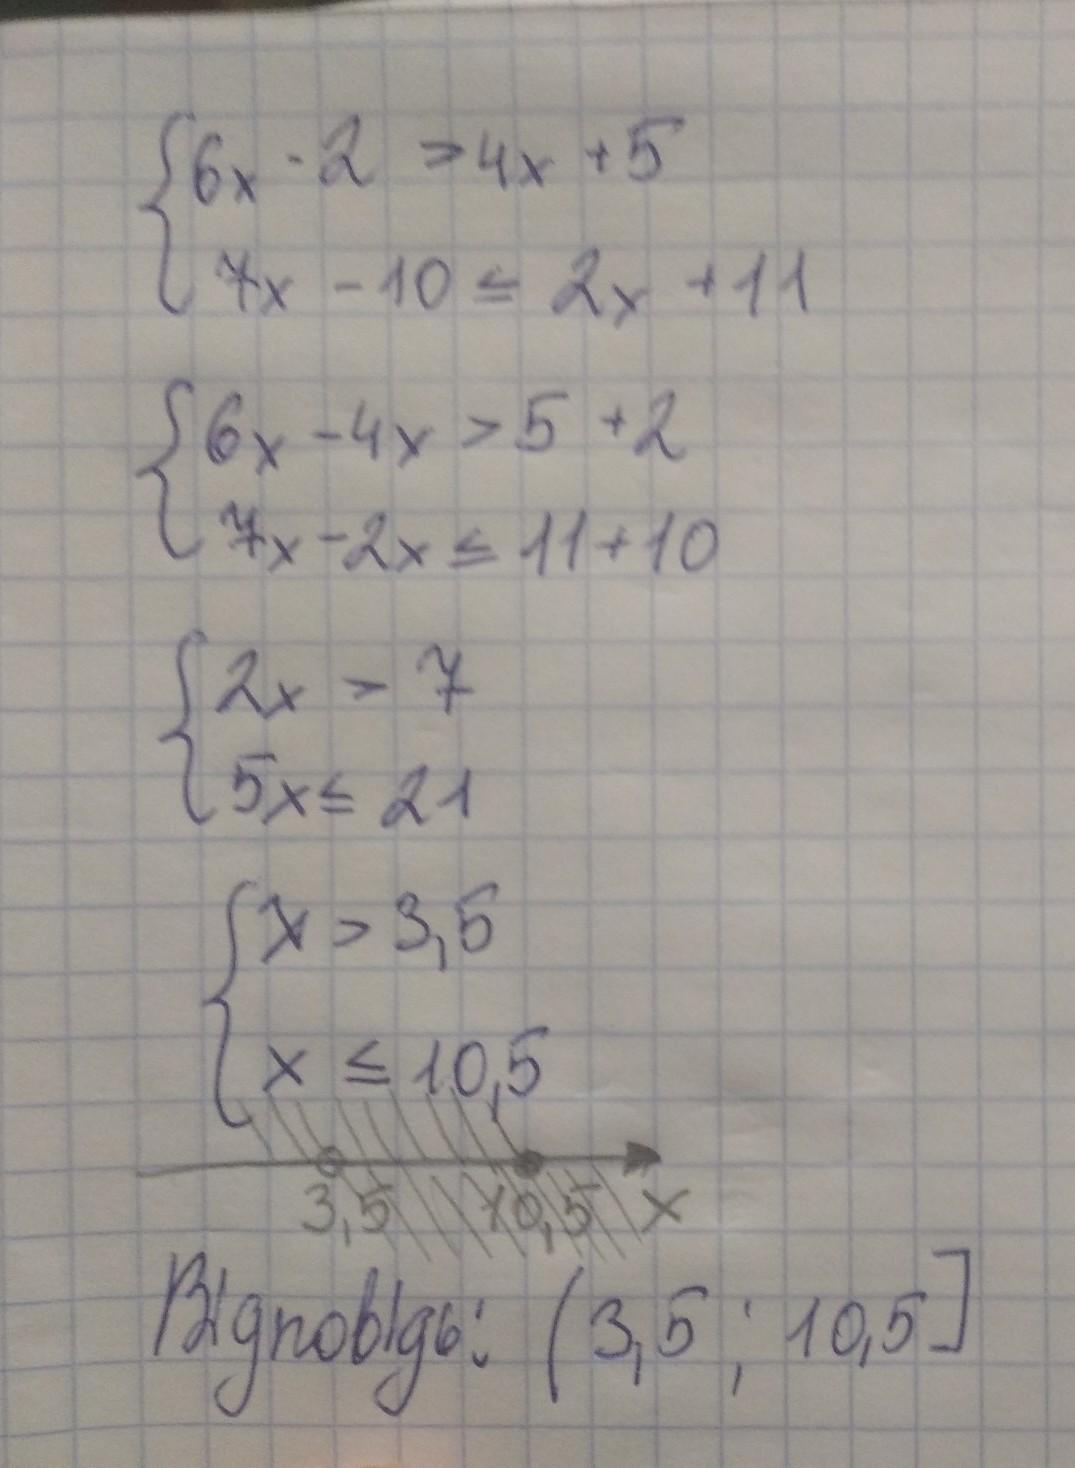 6x - 2 > 4x + 5
7x - 10 ≤ 2x + 11
6x - 4x > 5 + 2
7x - 2x ≤ 11 + 10
2x > 7
5x ≤ 21
x > 3,5
x ≤ 10,5
3,5 10,5 x
Відповідь: (3,5 ; 10,5]